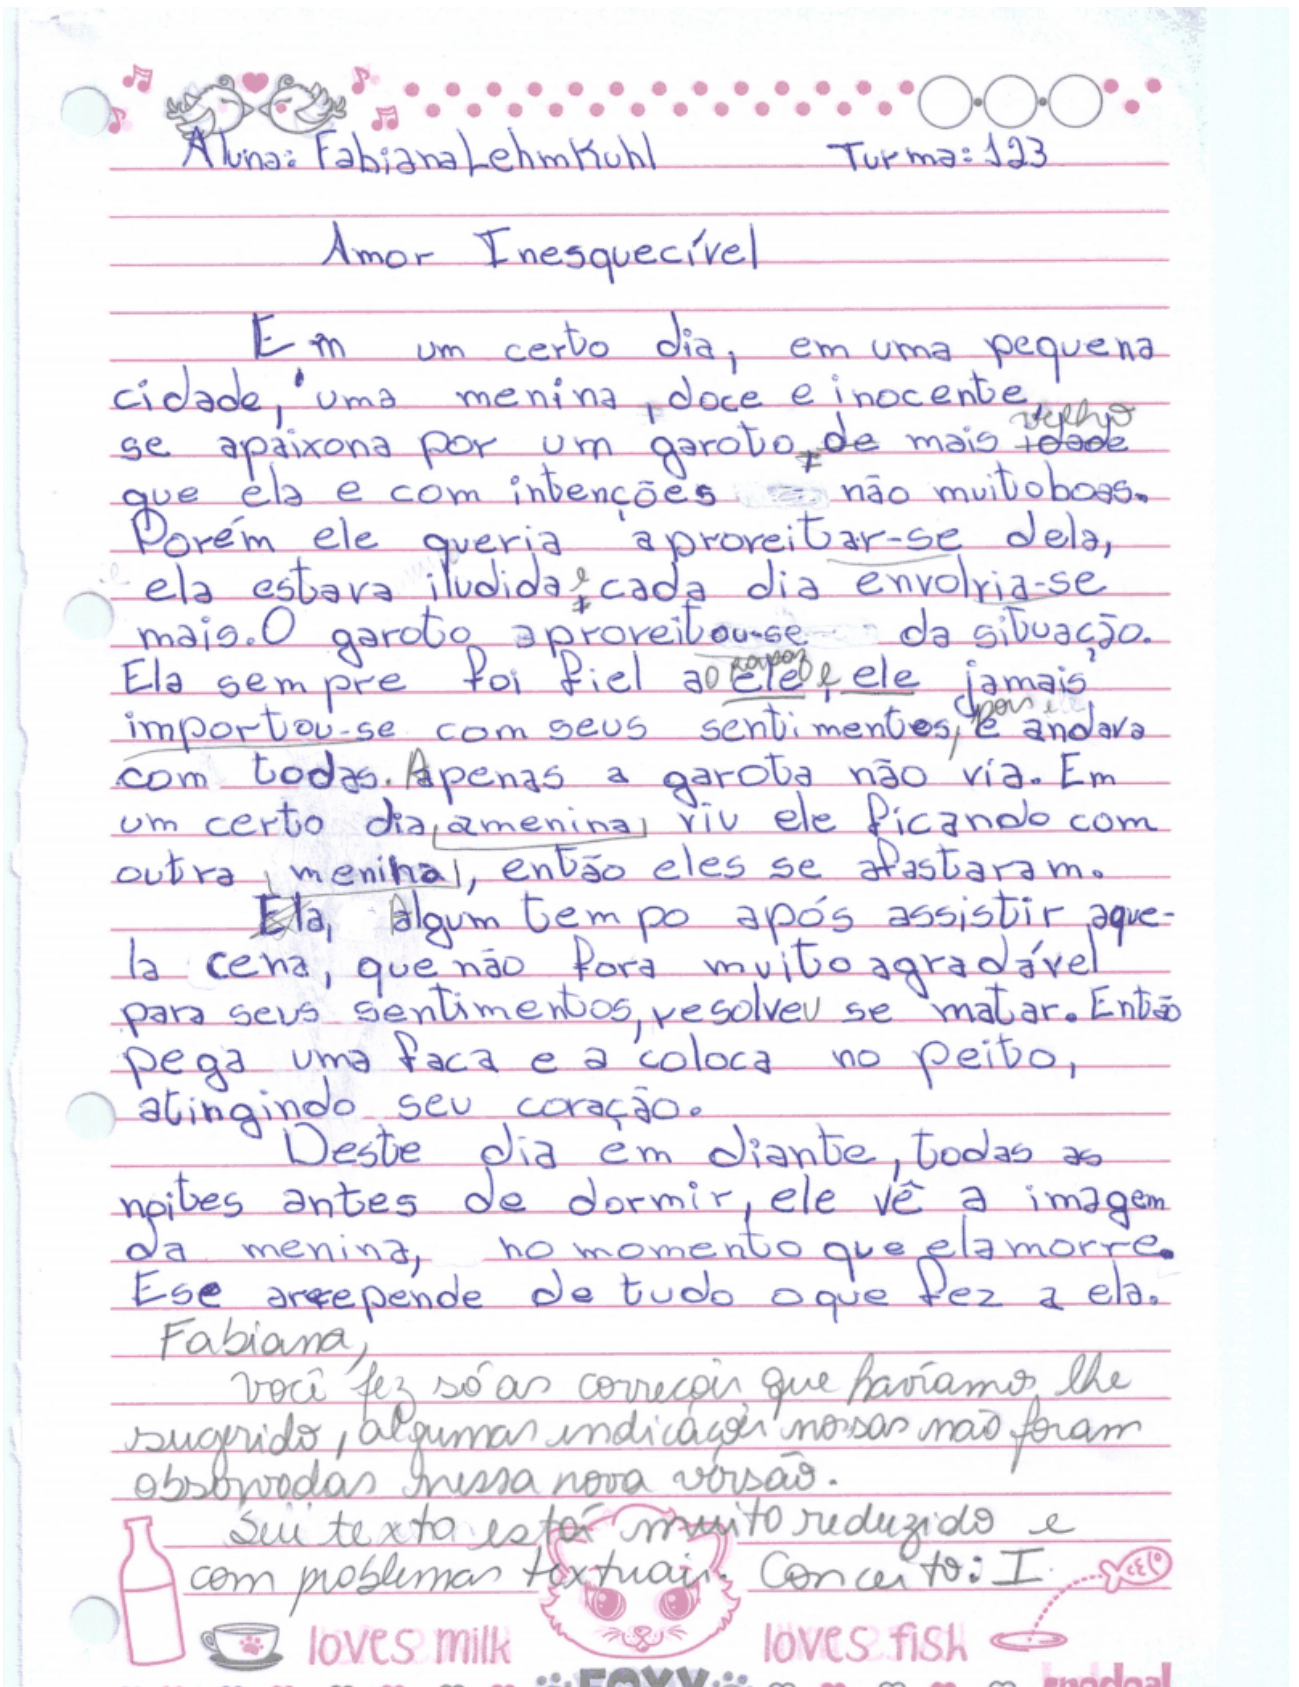 Aluna: Fabiana Lehmkuhl Turma: 123
Amor Inesquecível
Em um certo dia, em uma pequena
cidade, uma menina, doce e inocente,
velho
se apaixona por um garoto, de mais idade
que ela e com intenções não muito boas.
Porém ele queria aproveitar-se dela,
ela estava iludida, e cada dia envolvia-se
mais. O garoto aproveitou-se da situação.
rapaz
Ela sempre foi fiel ao ele, e ele jamais
pois ele
importou-se com seus sentimentos, e andava
com todas. Apenas a garota não via. Em
um certo dia, a menina viu ele ficando com
outra menina, então eles se afastaram.
Ela, Algum tempo após assistir aque-
la cena, que não fora muito agradável
para seus sentimentos, resolveu se matar. Então
pega uma faca e a coloca no peito,
atingindo seu coração.
Deste dia em diante, todas as
noites antes de dormir, ele vê a imagem
da menina, no momento que ela morre.
E se arrepende de tudo o que fez a ela.
Fabiana,
você fez só as correções que havíamos lhe
sugerido, algumas indicações nossas não foram
observadas nessa nova versão.
Seu texto está muito reduzido e
com problemas textuais. Conceito: I.
loves milk loves fish
FOXY